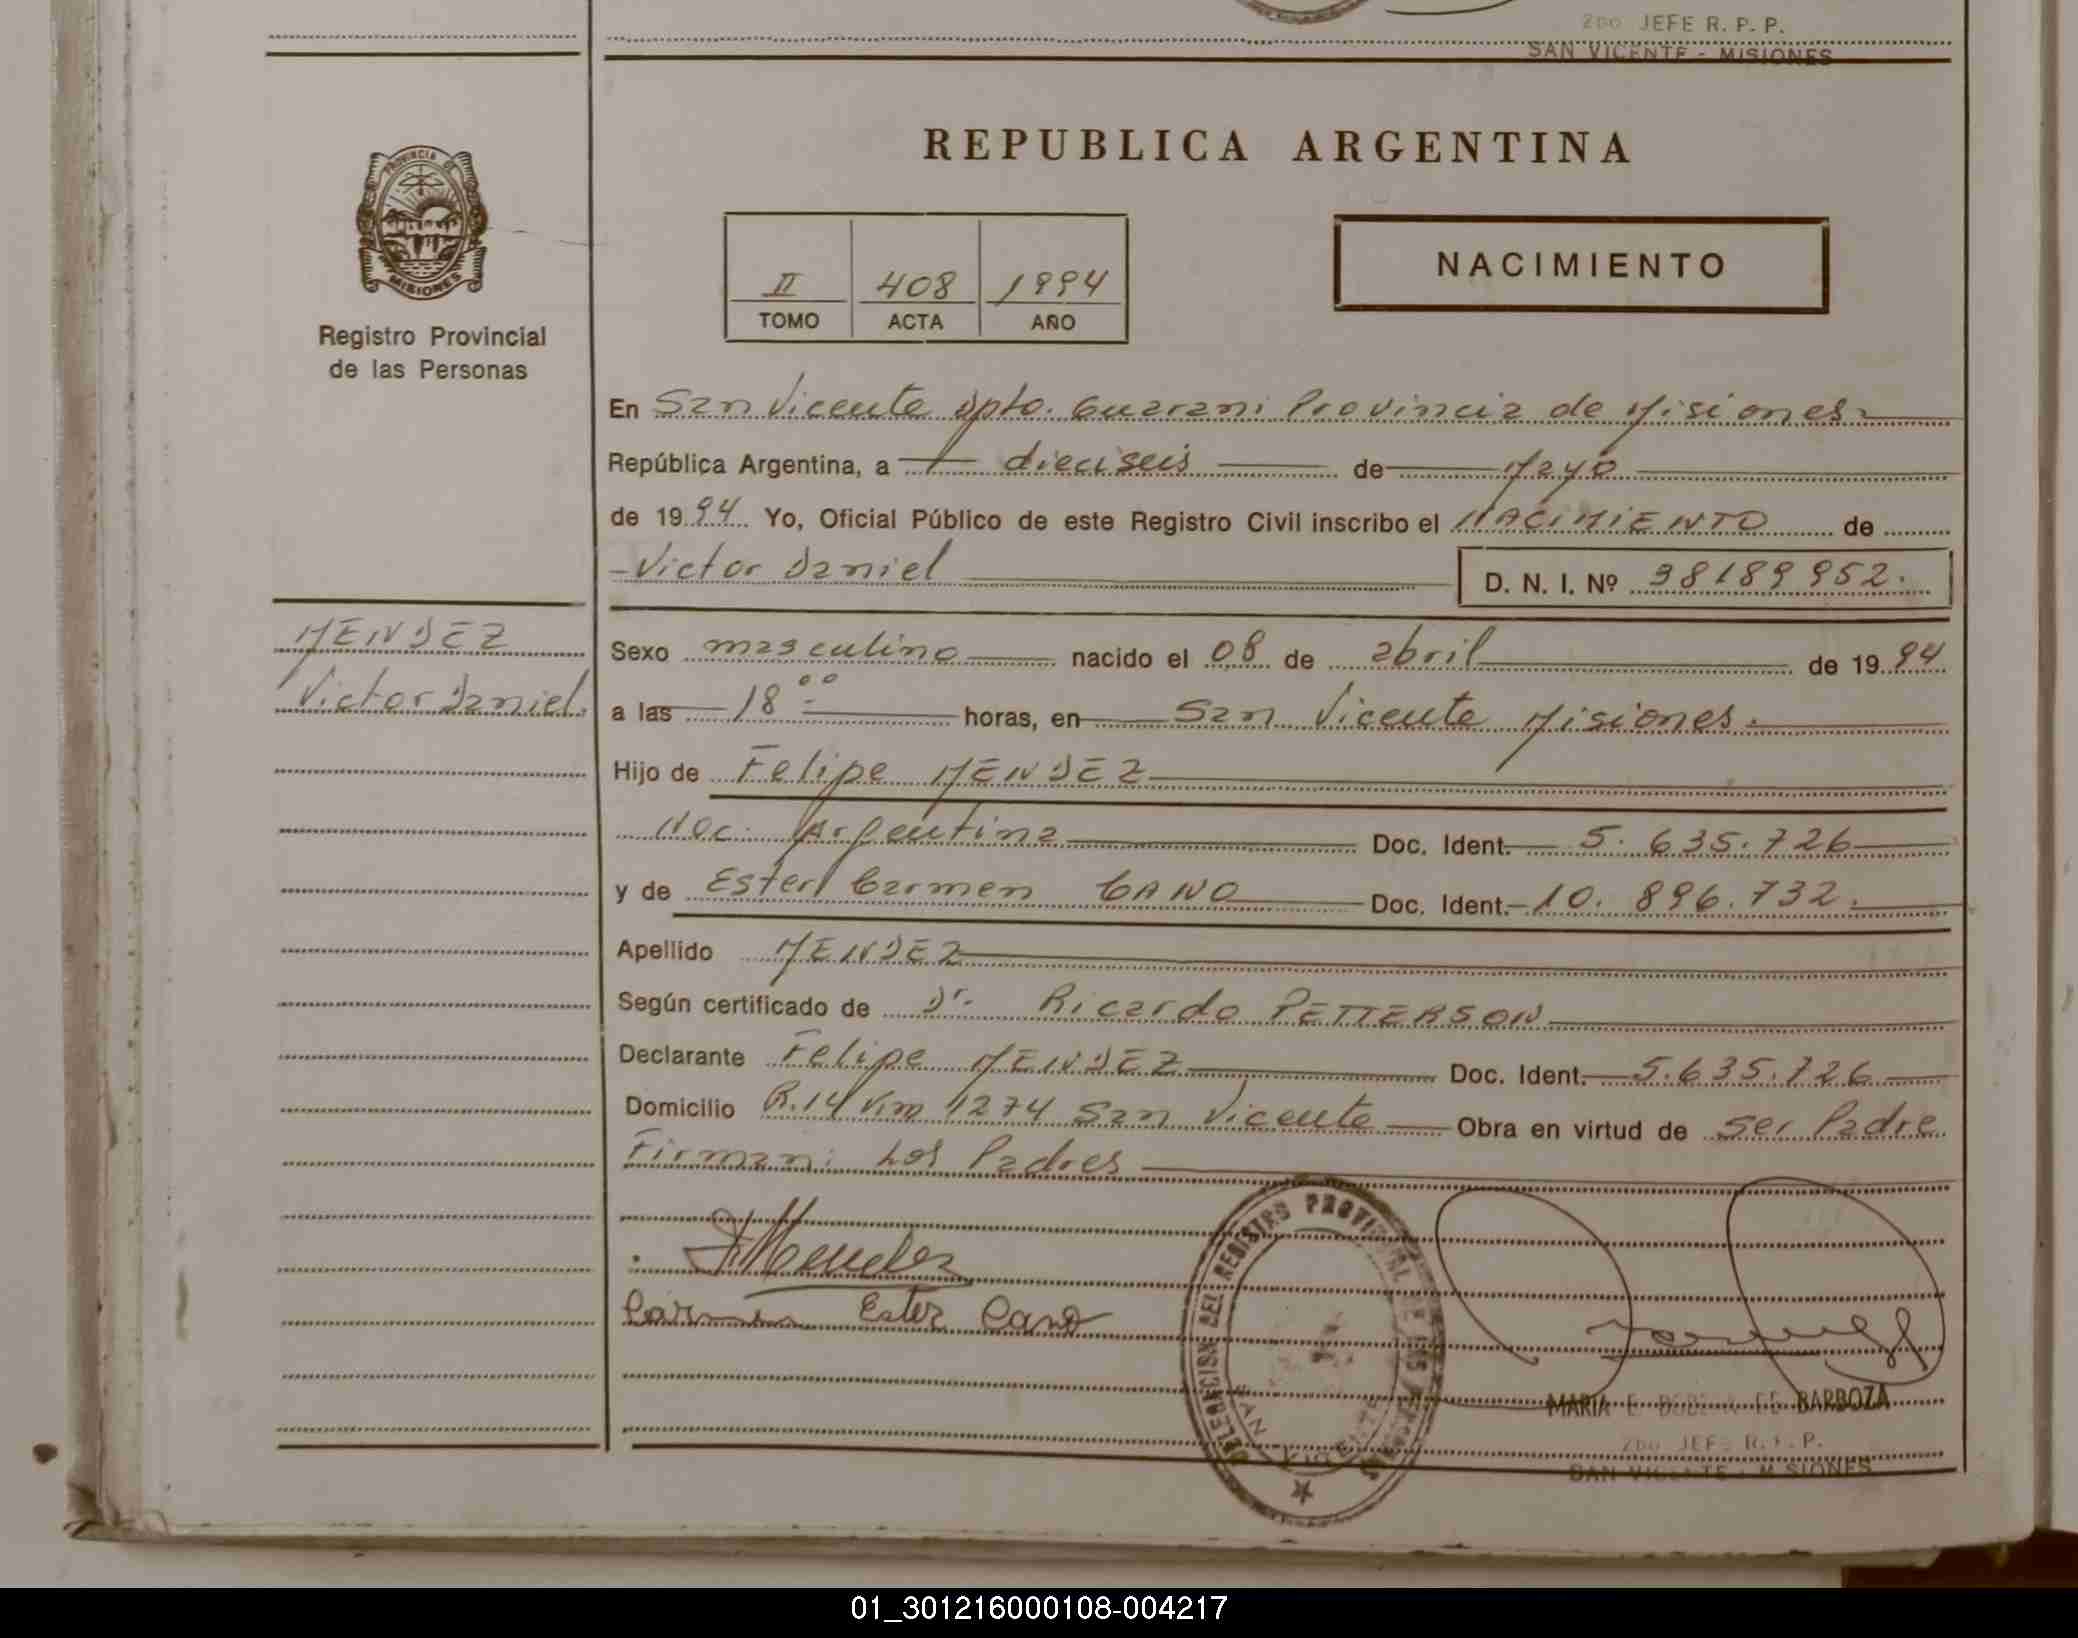 2DO JEFE R. P. P.
SAN VICENTE - MISIONES
PROVINCIA DE
MISIONES
Registro Provincial
de las Personas
REPUBLICA ARGENTINA
II 408 1994
TOMO ACTA AÑO
NACIMIENTO
En San Vicente Dpto. Guarani Provincia de Misiones
República Argentina, a dieciseis de Mayo
de 1994 Yo, Oficial Público de este Registro Civil inscribo el NACIMIENTO de
Victor Daniel D. N. I. Nº 38189952.
MENDEZ
Victor Daniel.
Sexo masculino nacido el 08 de abril de 1994
a las 18 00 horas, en San Vicente Misiones.
Hijo de Felipe MENDEZ
Nac. Argentina Doc. Ident. 5.635.726
y de Ester Carmen CANO Doc. Ident. 10.896.732.
Apellido MENDEZ
Según certificado de Dr. Ricardo PETTERSON
Declarante Felipe MENDEZ Doc. Ident. 5.635.726
Domicilio R.14 Km 1274 San Vicente Obra en virtud de ser Padre
Firman: Los Padres
FMendez
Carmen Ester Cano
DELEGACION DEL REGISTRO PROVINCIAL DE LAS PERSONAS
SAN VICENTE
MARIA E. DE BARBOZA
2DO JEFE R. P. P.
SAN VICENTE - MISIONES
01_301216000108-004217